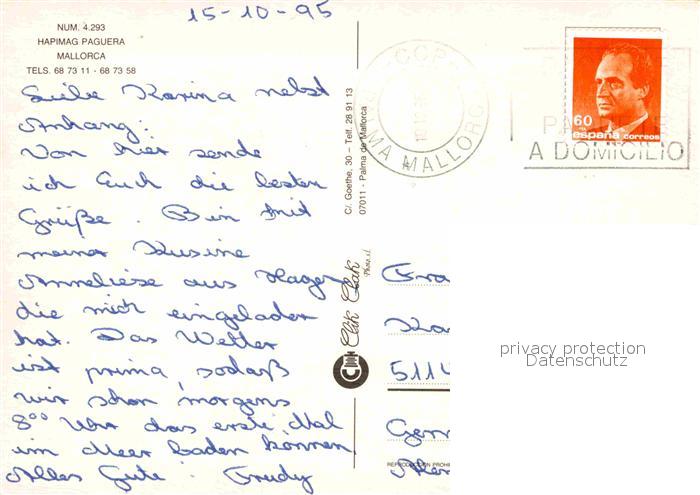 15-10-95
NUM. 4.293
HAPIMAG PAGUERA
MALLORCA
TELS. 68 73 11 - 68 73 58
Liebe Karina nebst
Anhang:
Von hier sende
ich Euch die besten
Grüße. Bin mit
meiner Kusine
Anneliese aus Hagen
die mich eingeladen
hat. Das Wetter
ist prima, sodaß
wir schon morgens
8⁰⁰ Uhr das erste Mal
im Meer baden können.
Alles Gute: Trudy
C/. Goethe, 30 - Telf. 28 91 13
07011 - Palma de Mallorca
Clik Clak
Photo s.l.
REPRODUCCION PROHIB
MA MALLORC
60
españa correos
A DOMICILIO
Fra
Ka
5114
Germ
Alem
privacy protection
Datenschutz